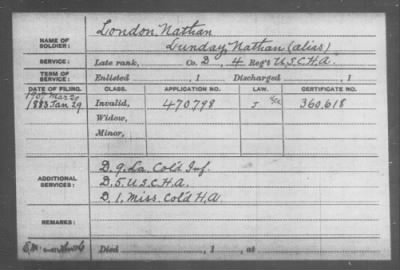 NAME OF SOLDIER: London, Nathan
Lunday, Nathan (alias)
SERVICE: Late rank, Co. D, 4 Reg't U.S.C.H.A.
TERM OF SERVICE: Enlisted , 1 Discharged , 1
DATE OF FILING. CLASS. APPLICATION NO. LAW. CERTIFICATE NO.
1907 Mar 20
1883 Jan 29 Invalid, 470,798 J 360,618
Widow,
Minor,
ADDITIONAL SERVICES: D. 9. La. Col'd Inf.
D. 5. U.S.C.H.A.
D. 1. Miss. Col'd H.A.
REMARKS:
Died , 1 , at